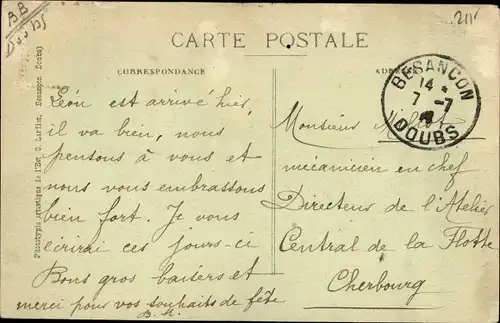 BB
Doubs
211
CARTE POSTALE
CORRESPONDANCE
BESANÇON
14 *
7 -7
DOUBS
Phototypie artistique de l'Est C. Lardier, Besançon (Doubs)
Léon est arrivé hier,
il va bien, nous
pensons à vous et
nous vous embrassons
bien fort. Je vous
écrirai ces jours-ci
Bons gros baisers et
merci pour vos souhaits de fête
B. M.
Monsieur
mécanicien en chef
Directeur de l'Atelier
Central de la Flotte
Cherbourg